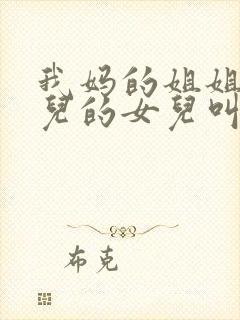 我妈的姐姐
兒的女兒叫
布克